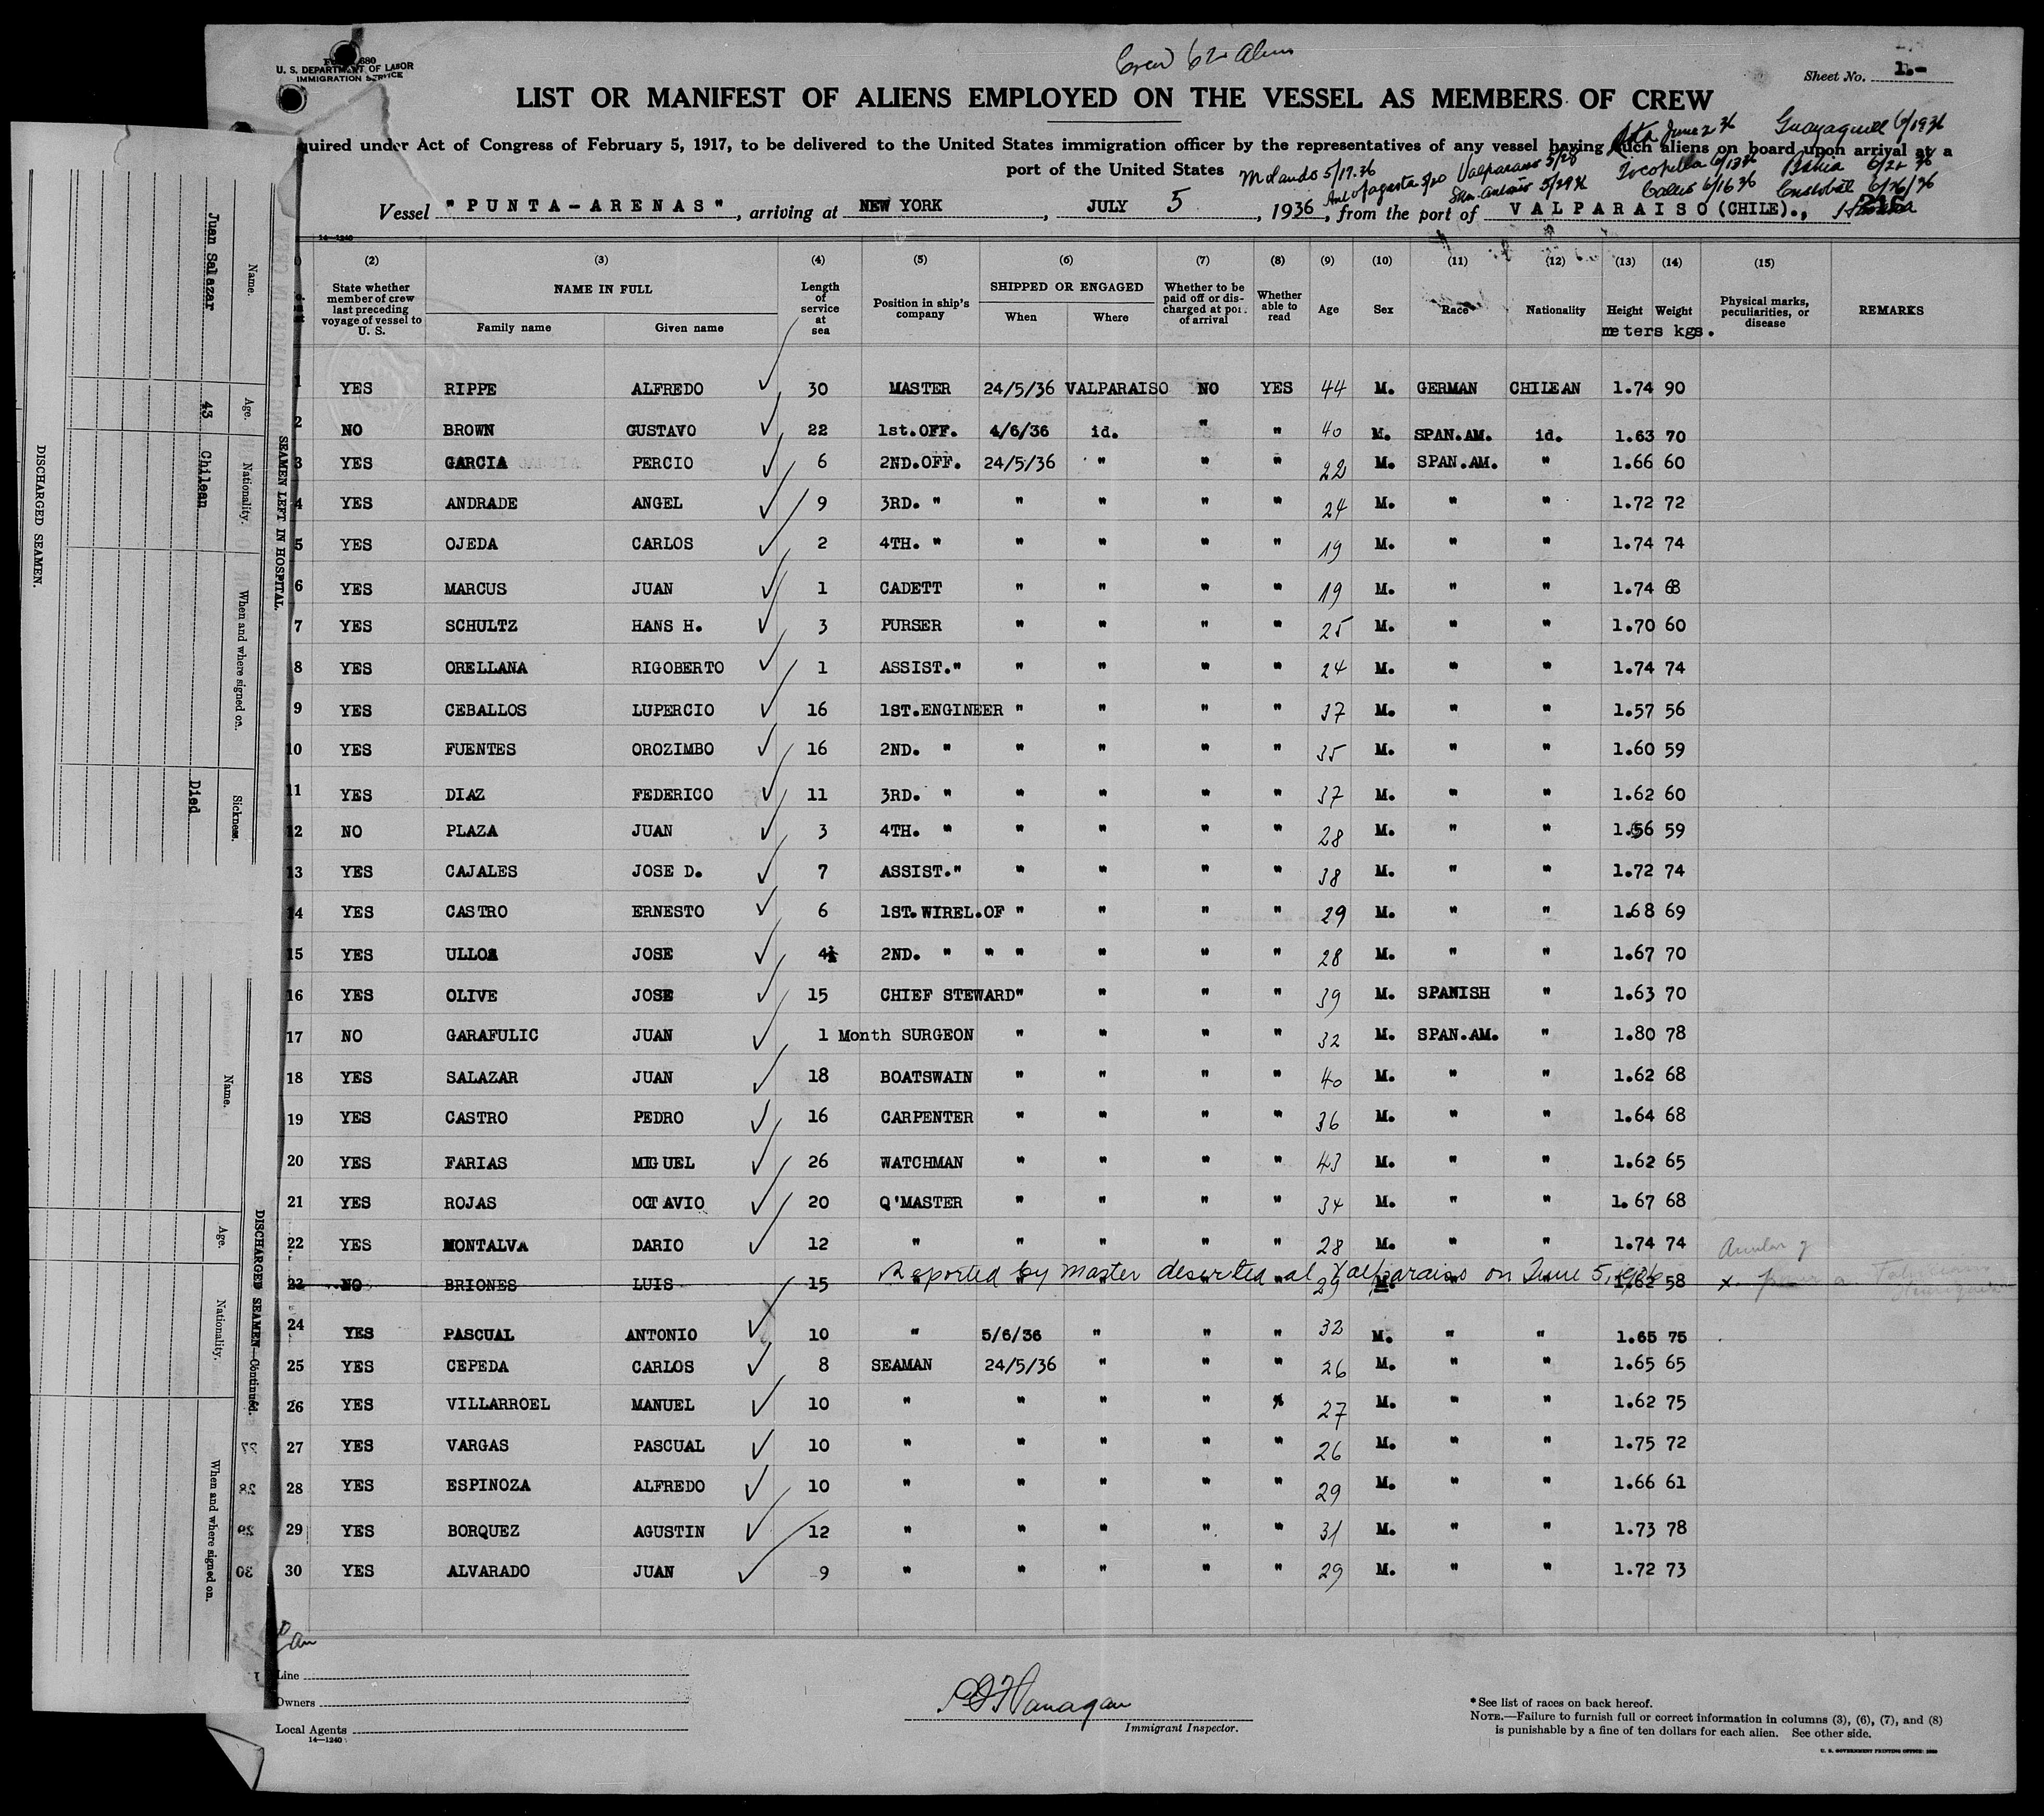 Crew 62 Aliens
U. S. DEPARTMENT OF LABOR
IMMIGRATION SERVICE
Sheet No. 1.-
LIST OR MANIFEST OF ALIENS EMPLOYED ON THE VESSEL AS MEMBERS OF CREW
quired under Act of Congress of February 5, 1917, to be delivered to the United States immigration officer by the representatives of any vessel having such aliens on board upon arrival at a
port of the United States
June 2 36 Guayaquil 6/19 36
Valparaiso 5/28 Tocopilla 6/13 36 Bahia
Antofagasta San Antonio 5/29 36 6/16 36 Cristobal 6/26/36
Vessel "PUNTA-ARENAS", arriving at NEW YORK, JULY 5, 1936, from the port of VALPARAISO (CHILE).,
14-1240
(2) (3) (4) (5) (6) (7) (8) (9) (10) (11) (12) (13) (14) (15)
State whether member of crew last preceding voyage of vessel to U. S. NAME IN FULL Family name Given name Length of service at sea Position in ship's company SHIPPED OR ENGAGED When Where Whether to be paid off or discharged at port of arrival Whether able to read Age Sex Race Nationality Height Weight Physical marks, peculiarities, or disease REMARKS
meters kgs.
1 YES RIPPE ALFREDO 30 MASTER 24/5/36 VALPARAISO NO YES 44 M. GERMAN CHILEAN 1.74 90
2 NO BROWN GUSTAVO 22 1st.OFF. 4/6/36 id. " " 40 M. SPAN.AM. id. 1.63 70
3 YES GARCIA PERCIO 6 2ND.OFF. 24/5/36 " " " 22 M. SPAN.AM. " 1.66 60
4 YES ANDRADE ANGEL 9 3RD. " " " " " 24 M. " " 1.72 72
5 YES OJEDA CARLOS 2 4TH. " " " " " 19 M. " " 1.74 74
6 YES MARCUS JUAN 1 CADETT " " " " 19 M. " " 1.74 68
7 YES SCHULTZ HANS H. 3 PURSER " " " " 25 M. " " 1.70 60
8 YES ORELLANA RIGOBERTO 1 ASSIST." " " " " 24 M. " " 1.74 74
9 YES CEBALLOS LUPERCIO 16 1ST.ENGINEER " " " " 37 M. " " 1.57 56
10 YES FUENTES OROZIMBO 16 2ND. " " " " " 35 M. " " 1.60 59
11 YES DIAZ FEDERICO 11 3RD. " " " " " 37 M. " " 1.62 60
12 NO PLAZA JUAN 3 4TH. " " " " " 28 M. " " 1.56 59
13 YES CAJALES JOSE D. 7 ASSIST." " " " " 38 M. " " 1.72 74
14 YES CASTRO ERNESTO 6 1ST.WIREL.OF " " " " 29 M. " " 1.68 69
15 YES ULLOA JOSE 4½ 2ND. " " " " " " 28 M. " " 1.67 70
16 YES OLIVE JOSE 15 CHIEF STEWARD" " " " 39 M. SPANISH " 1.63 70
17 NO GARAFULIC JUAN 1 Month SURGEON " " " " 32 M. SPAN.AM. " 1.80 78
18 YES SALAZAR JUAN 18 BOATSWAIN " " " " 40 M. " " 1.62 68
19 YES CASTRO PEDRO 16 CARPENTER " " " " 36 M. " " 1.64 68
20 YES FARIAS MIGUEL 26 WATCHMAN " " " " 43 M. " " 1.62 65
21 YES ROJAS OCTAVIO 20 Q'MASTER " " " " 34 M. " " 1.67 68
22 YES MONTALVA DARIO 12 " " " " " 28 M. " " 1.74 74
Reported by Master deserted at Valparaiso on June 5, 1936
23 NO BRIONES LUIS 15 " " " 29 M. 1.62 58
24 YES PASCUAL ANTONIO 10 " 5/6/36 " " " 32 M. " " 1.65 75
25 YES CEPEDA CARLOS 8 SEAMAN 24/5/36 " " " 26 M. " " 1.65 65
26 YES VILLARROEL MANUEL 10 " " " " " 27 M. " " 1.62 75
27 YES VARGAS PASCUAL 10 " " " " " 26 M. " " 1.75 72
28 YES ESPINOZA ALFREDO 10 " " " " " 29 M. " " 1.66 61
29 YES BORQUEZ AGUSTIN 12 " " " " " 31 M. " " 1.73 78
30 YES ALVARADO JUAN 9 " " " " " 29 M. " " 1.72 73
Line
Owners
Local Agents
14-1240
Immigrant Inspector.
* See list of races on back hereof.
NOTE.—Failure to furnish full or correct information in columns (3), (6), (7), and (8)
is punishable by a fine of ten dollars for each alien. See other side.
U. S. GOVERNMENT PRINTING OFFICE
SEAMEN LEFT IN HOSPITAL.
Name. Age. Nationality. When and where signed on. Sickness.
Juan Salazar 43 Chilean Died
DISCHARGED SEAMEN.
DISCHARGED SEAMEN—Continued.
Name. Age. Nationality. When and where signed on.